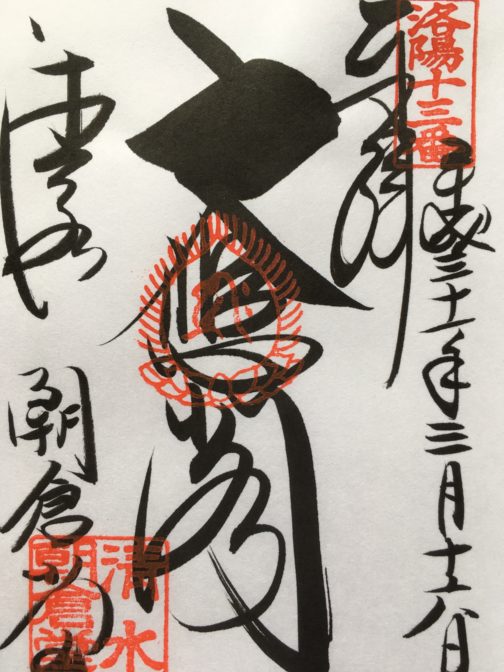 洛陽十三番
平成三十一年三月十六日
奉拝
大悲閣
朝倉堂
清水
朝倉堂